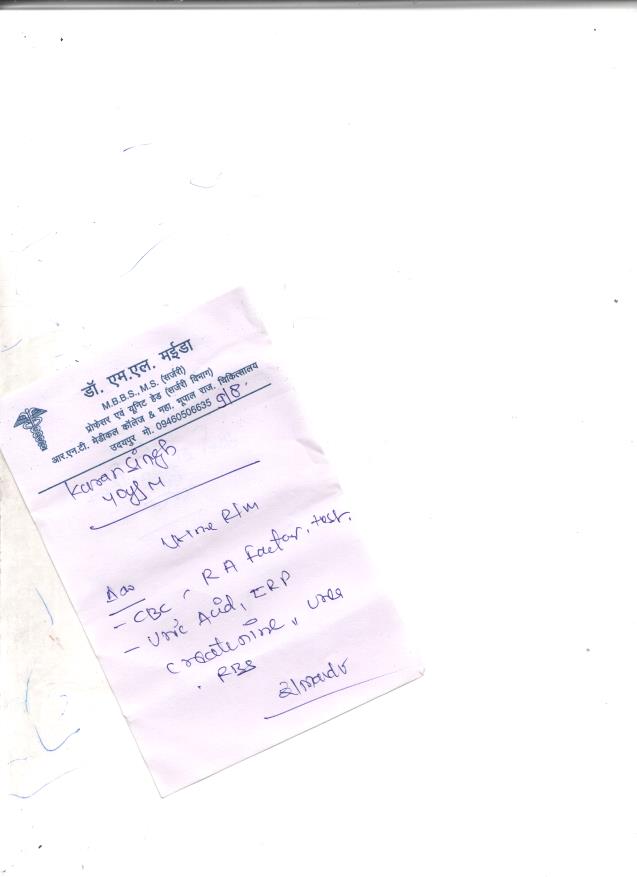 डॉ. एम.एल. मईडा
M.B.B.S., M.S. (सर्जरी)
प्रोफेसर एवं यूनिट हेड (सर्जरी विभाग)
आर.एन.टी. मेडीकल कॉलेज & महा. भूपाल राज. चिकित्सालय
उदयपुर मो. 09460506635
9/8.
Karan Singh
M
Urine R/M
- CBC, RA Factor, test.
- Uric Acid,
Creatinine, Urea
. RBS